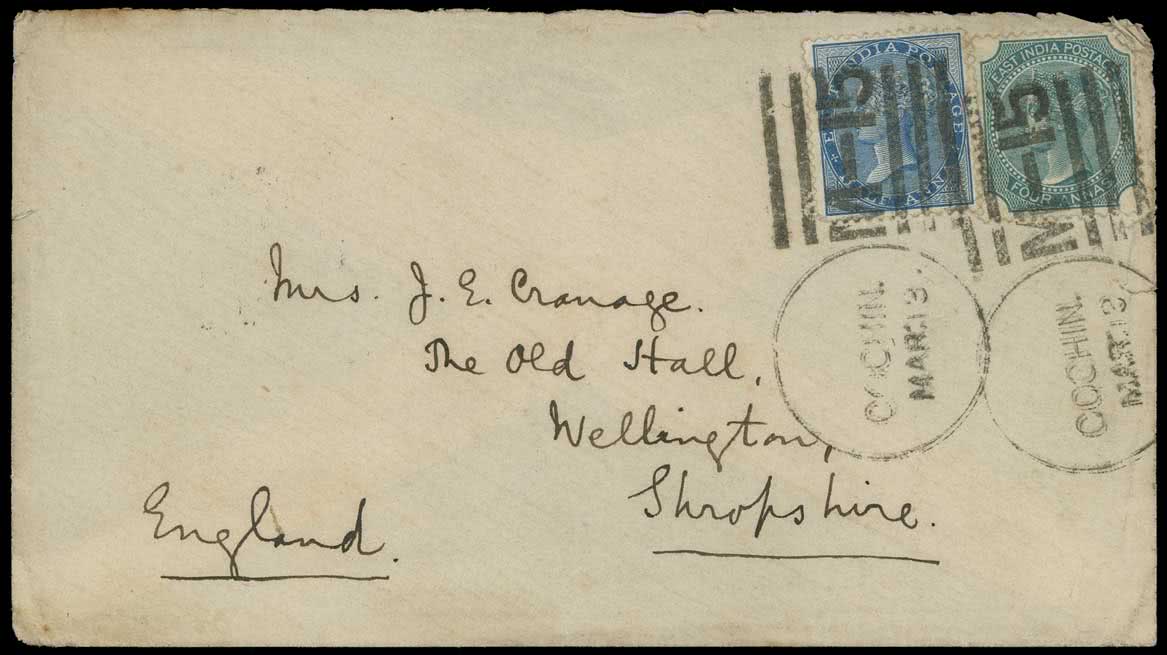 EAST INDIA POSTAGE
HALF ANNA
EAST INDIA POSTAGE
FOUR ANNAS
M-15
M-15
COCHIN.
MAR.13
COCHIN.
MAR.13
Mrs. J. E. Cranage.
The Old Hall,
Wellington,
Shropshire.
England.